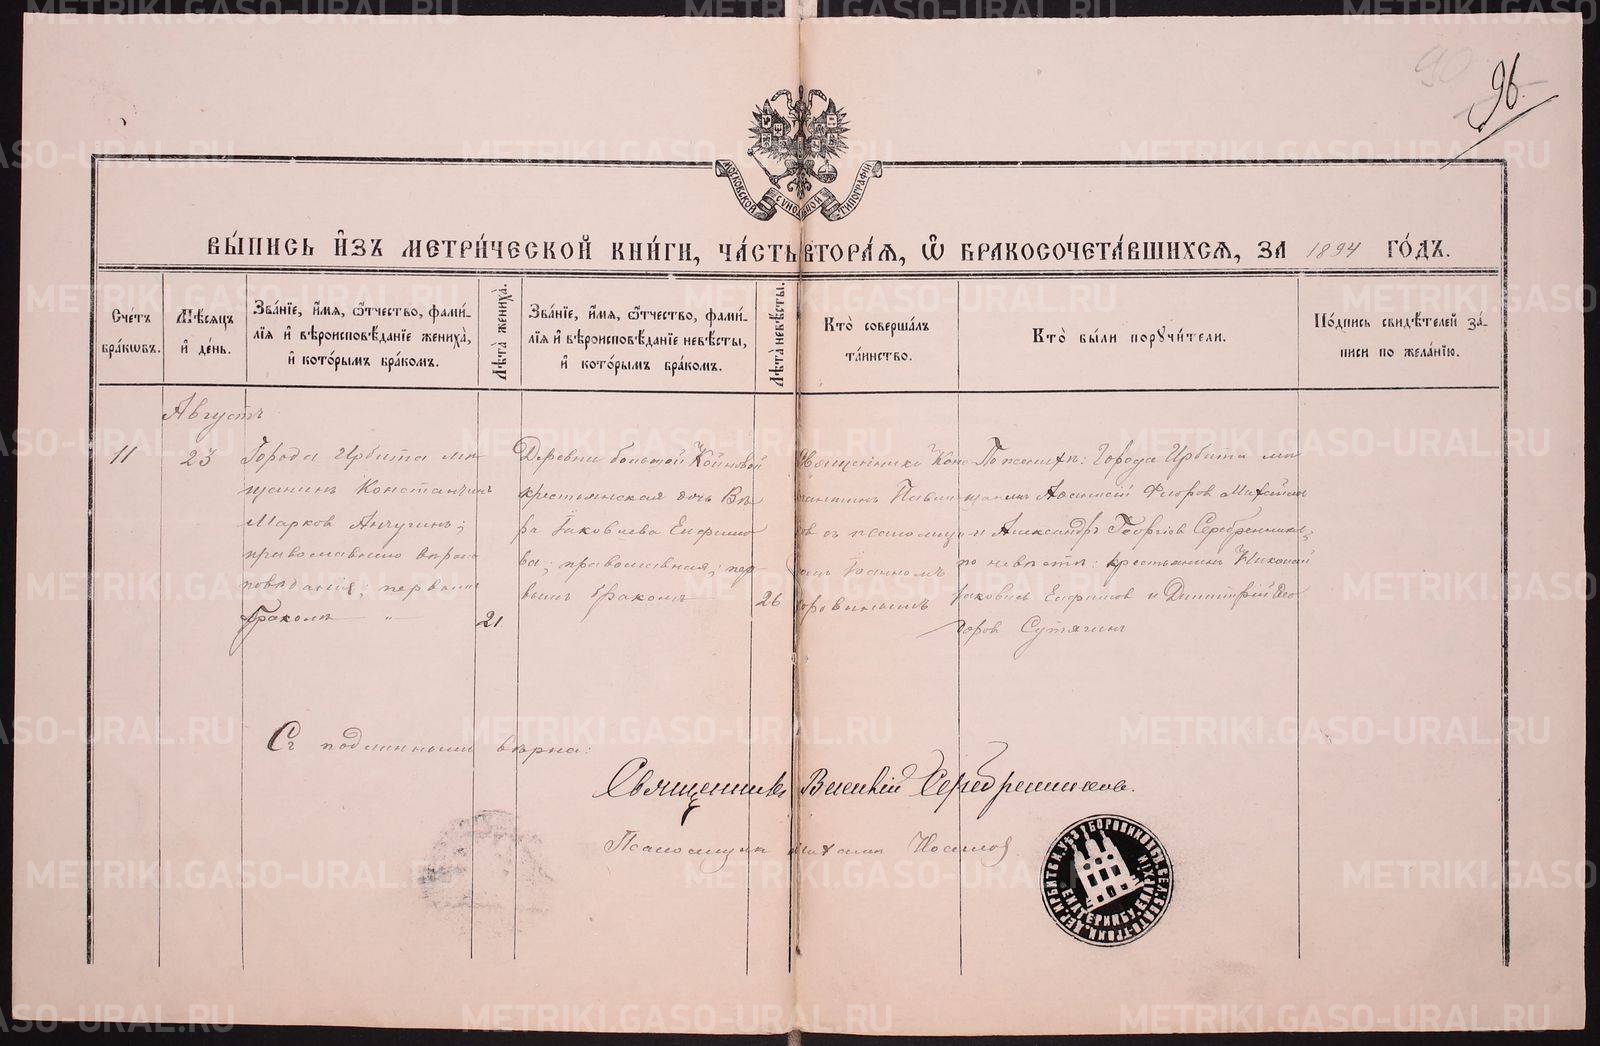 96.
90
МОСКОВСКОЙ СѴНОДАЛЬНОЙ ТИПОГРАФІИ
ВЫ́ПИСЬ И҆́ЗЪ МЕТРИ́ЧЕСКОЙ КНИ́ГИ, ЧА́СТЬ ВТОРА́Ѧ, Ѽ БРАКОСОЧЕТА́ВШИХСѦ, ЗА 1894 ГО́ДЪ.
Сче́тъ бра́кѡвъ.
Мѣ́сѧцъ и҆ де́нь.
Зва́нїе, и҆́мѧ, ѻ҆́тчество, фами́-
лїѧ и҆ вѣроисповѣ́данїе жениха̀,
и҆ кото́рымъ бра́комъ.
Лѣ́та жениха̀.
Зва́нїе, и҆́мѧ, ѻ҆́тчество, фами́-
лїѧ и҆ вѣроисповѣ́данїе невѣ́сты,
и҆ кото́рымъ бра́комъ.
Лѣ́та невѣ́сты.
Кто̀ соверша́лъ
та́инство.
Кто̀ бы́ли порꙋчи́тели.
По́дпись свидѣ́телей за́-
писи по жела́нїю.
Августъ
11
23
Города Ирбита мѣ-
щанинъ Константинъ
Марковъ Анчугинъ;
православнаго вѣроис-
повѣданія; первымъ
бракомъ "
21
Деревни большой
крестьянская дочь Вѣ-
ра Іаковлева Ефимо-
ва; православная; пер-
вымъ бракомъ
26
Священникъ Конс-
тантинъ
съ псаломщи-
комъ Іоанномъ
Боровиныхъ
По женихѣ: Города Ирбита мѣ-
щанинъ Аѳанасій Ѳедоровъ Михайлов
и Александръ Георгіевъ Серебренниковъ;
по невѣстѣ: крестьянинъ Николай
Іаковлевъ Ефимовъ и Димитрій Ѳео-
доровъ Сутягинъ
Съ подлиннымъ вѣрна:
Священникъ Василій Серебренниковъ.
Псаломщикъ Носиловъ